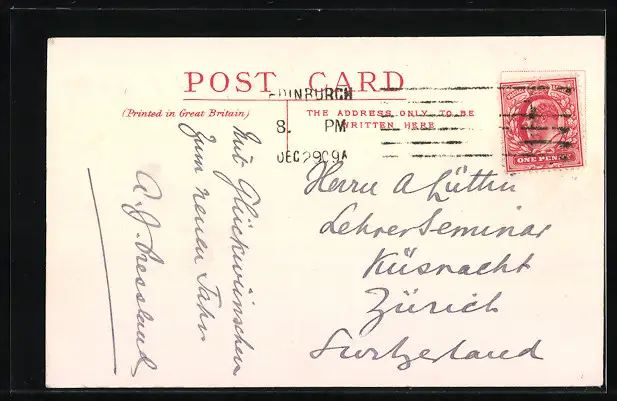 POST CARD
(Printed in Great Britain)
THE ADDRESS ONLY TO BE
WRITTEN HERE
EDINBURGH
8. PM
DEC 29 09 A
ONE PENNY
Mit Glückwünschen
zum neuen Jahr
A. J. Pressland
Herrn A Lüthi
Lehrer Seminar
Küsnacht
Zürich
Switzerland